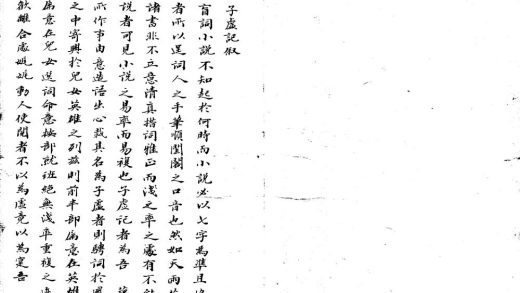 子虛記敘
盲詞小說不知起於何時而小說必以七字為準且
者所以逞詞人之手筆順閨閣之口音也然如天雨
諸書非不立意清真措詞雅正而淺之率之處有不
說者可見小說之易率而易複也子虛記者為吾
所作事由意造語出心裁其名為子虛者則騁詞於
之中寄興於兒女英雄之列茲則前半部屬意在英雄
屬意在兒女逞詞命意按部就班絕無淺率重複之
歡離合處娓娓動人使閱者不以為虛竟以為實吾